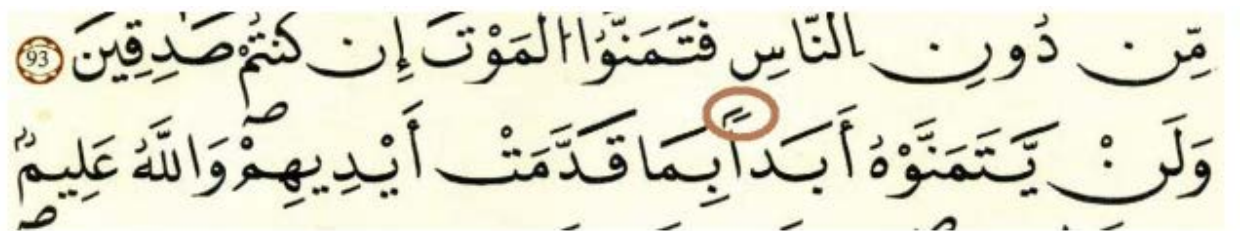 مِّن دُونِ النَّاسِ فَتَمَنَّوُا الْمَوْتَ إِن كُنتُمْ صَٰدِقِينَ 93
وَلَنْ يَّتَمَنَّوْهُ أَبَداً بِمَا قَدَّمَتْ أَيْدِيهِمْ وَاللَّهُ عَلِيمٌ